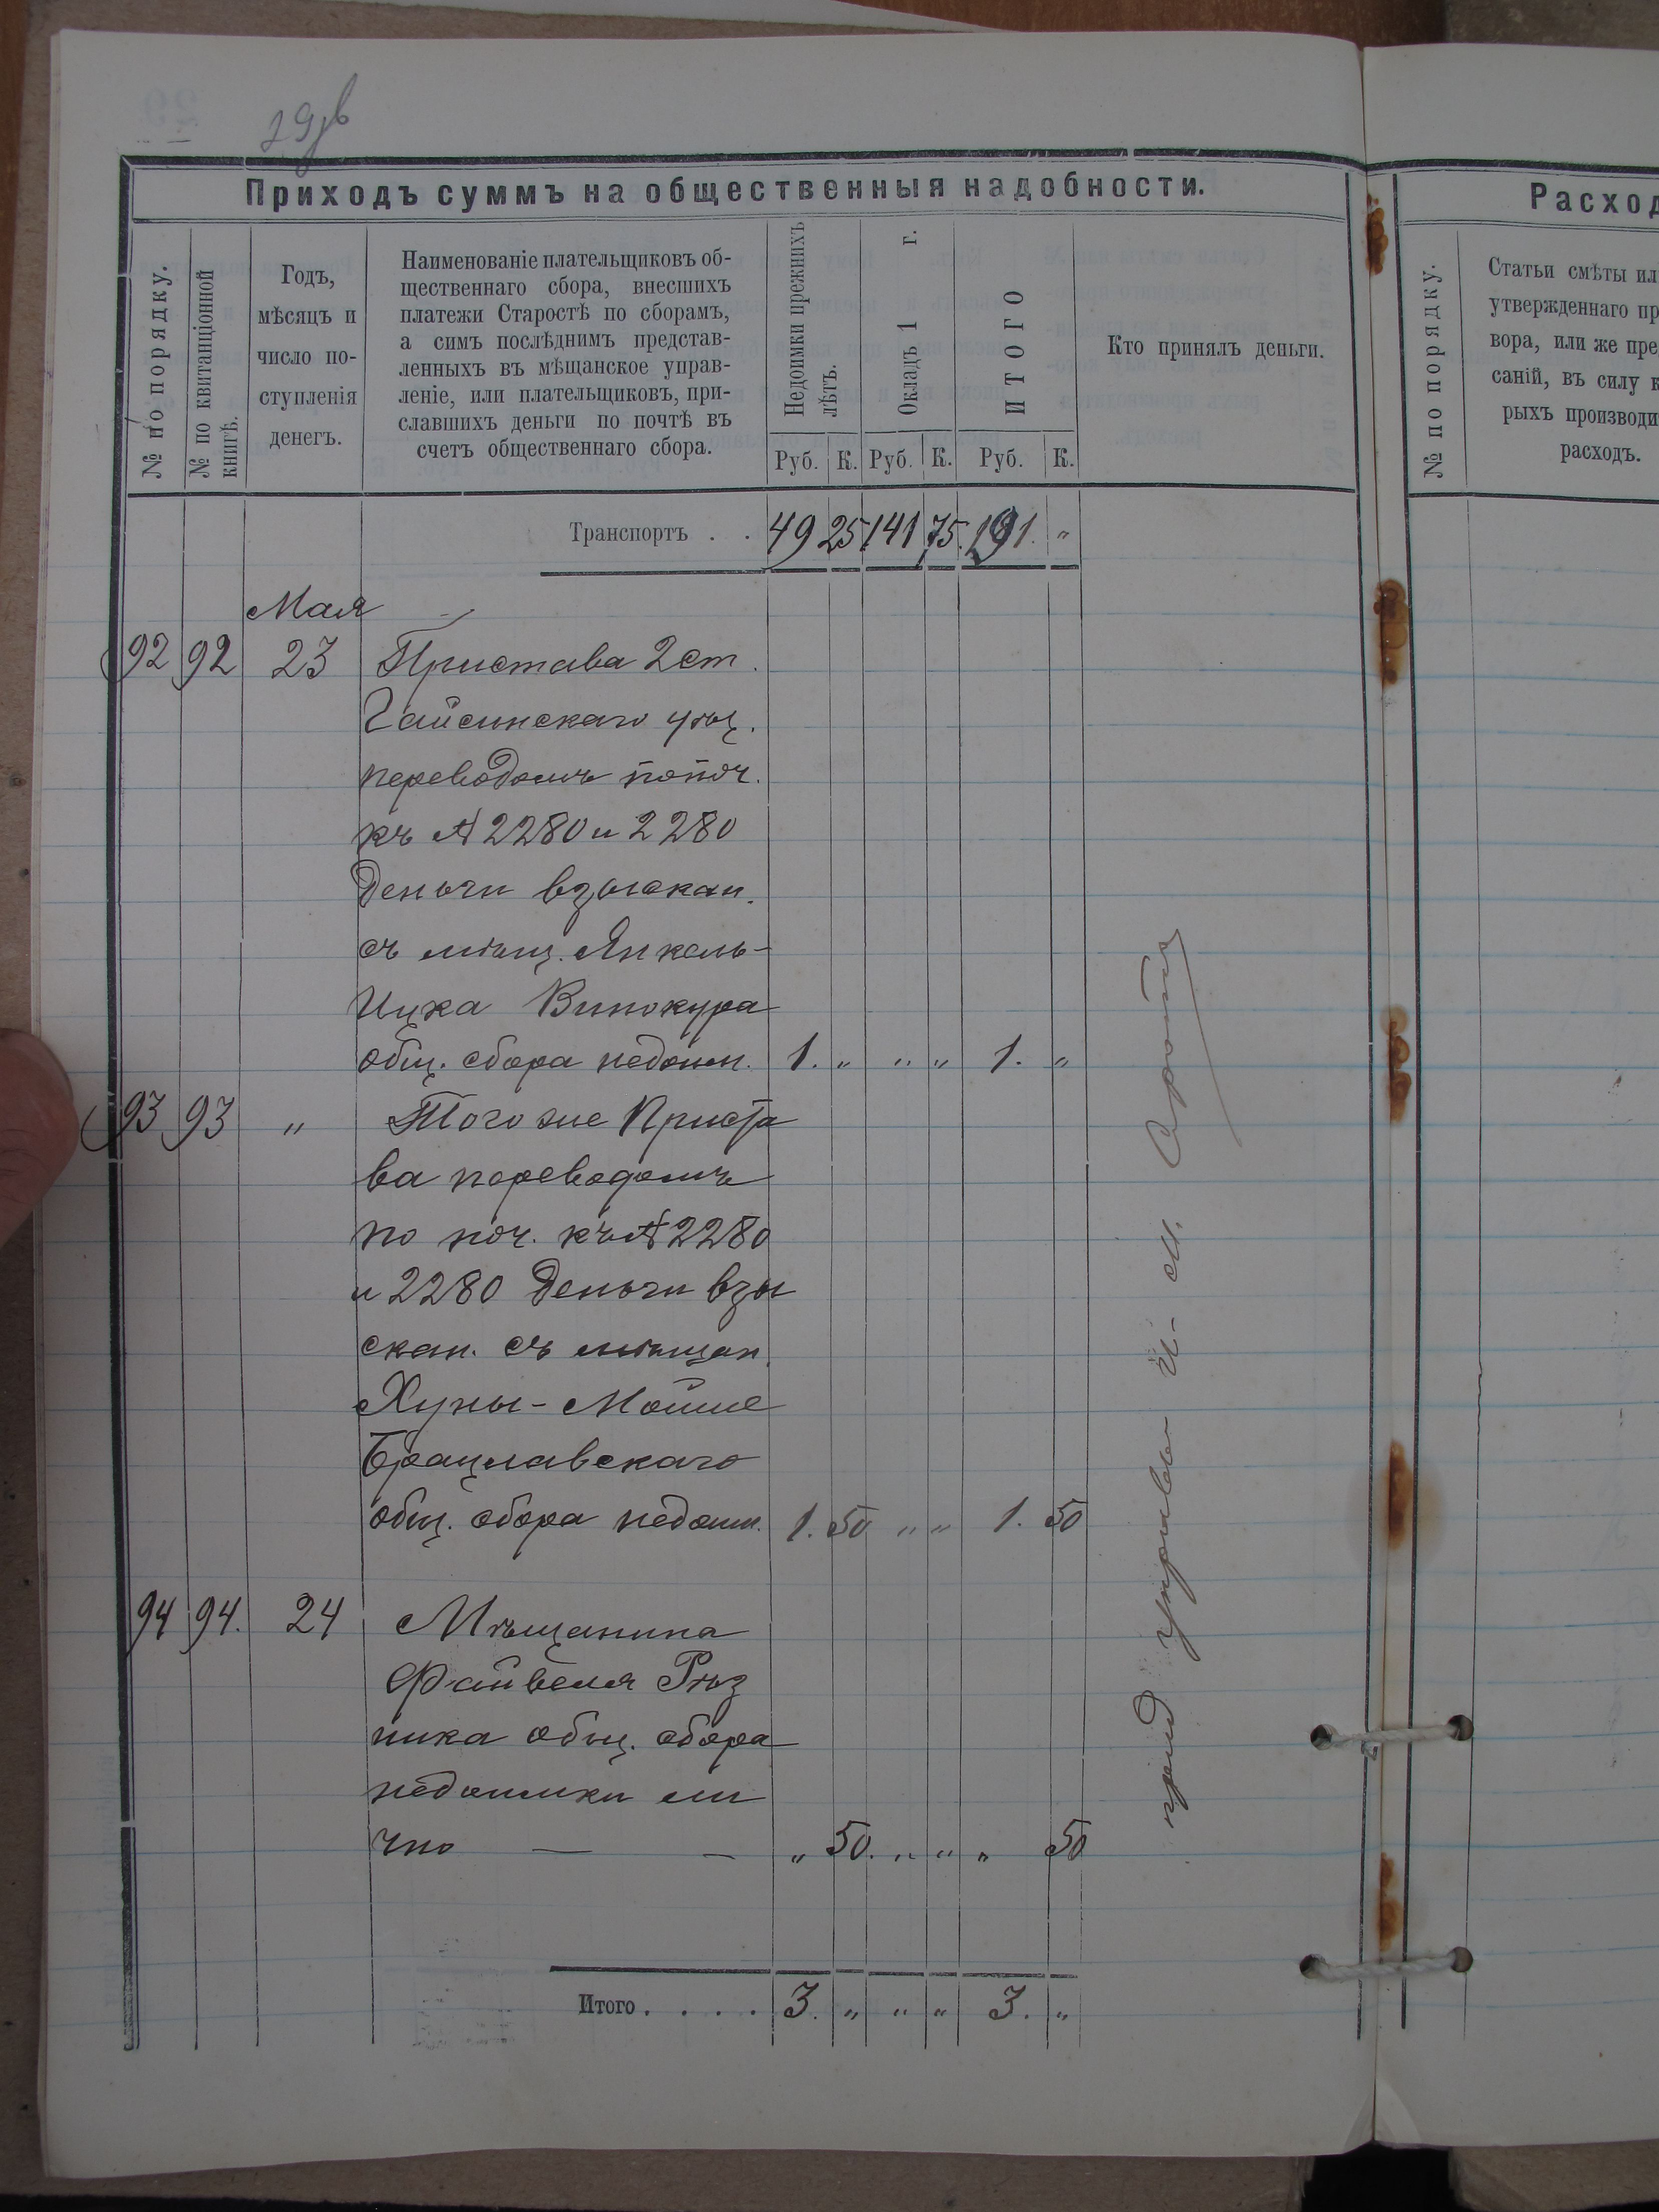 29
Приходъ суммъ на общественныя надобности.
Расход
№ по порядку.
№ по квитанціонной книгѣ.
Годъ,
мѣсяцъ и
число по-
ступленія
денегъ.
Наименованіе плательщиковъ об-
щественнаго сбора, внесшихъ
платежи Старостѣ по сборамъ,
а симъ послѣднимъ представ-
ленныхъ въ мѣщанское управ-
леніе, или плательщиковъ, при-
славшихъ деньги по почтѣ въ
счетъ общественнаго сбора.
Недоимки прежнихъ лѣтъ.
Окладъ 1 г.
ИТОГО
Руб. К. Руб. К. Руб. К.
Кто принялъ деньги.
№ по порядку.
Статьи смѣты ил
утвержденнаго пр
вора, или же пре
саній, въ силу к
рыхъ производи
расходъ.
Транспортъ . . 49 25 141 75 191. "
Мая
92 92 23 Пристава 2 ст.
Гайсинскаго уѣз.
переводомъ по поч.
къ № 2280 и 2280
деньги взыскан.
съ мѣщ. Янкель-
Ицка Винокура
общ. сбора недоим. 1. " " " 1. "
93 93 " Того же Приста
ва переводомъ
по поч. къ № 2280
и 2280 деньги взы
скан. съ мѣщан.
Хуны-Мойше
Брацлавскаго
общ. сбора недоим. 1. 50 " " 1. 50
94 94. 24 Мѣщанина
Файвеля Рѣз
ника общ. сбора
недоимки ли
чно — — " 50. " " " 50
Итого . . . . 3. " " " 3. "